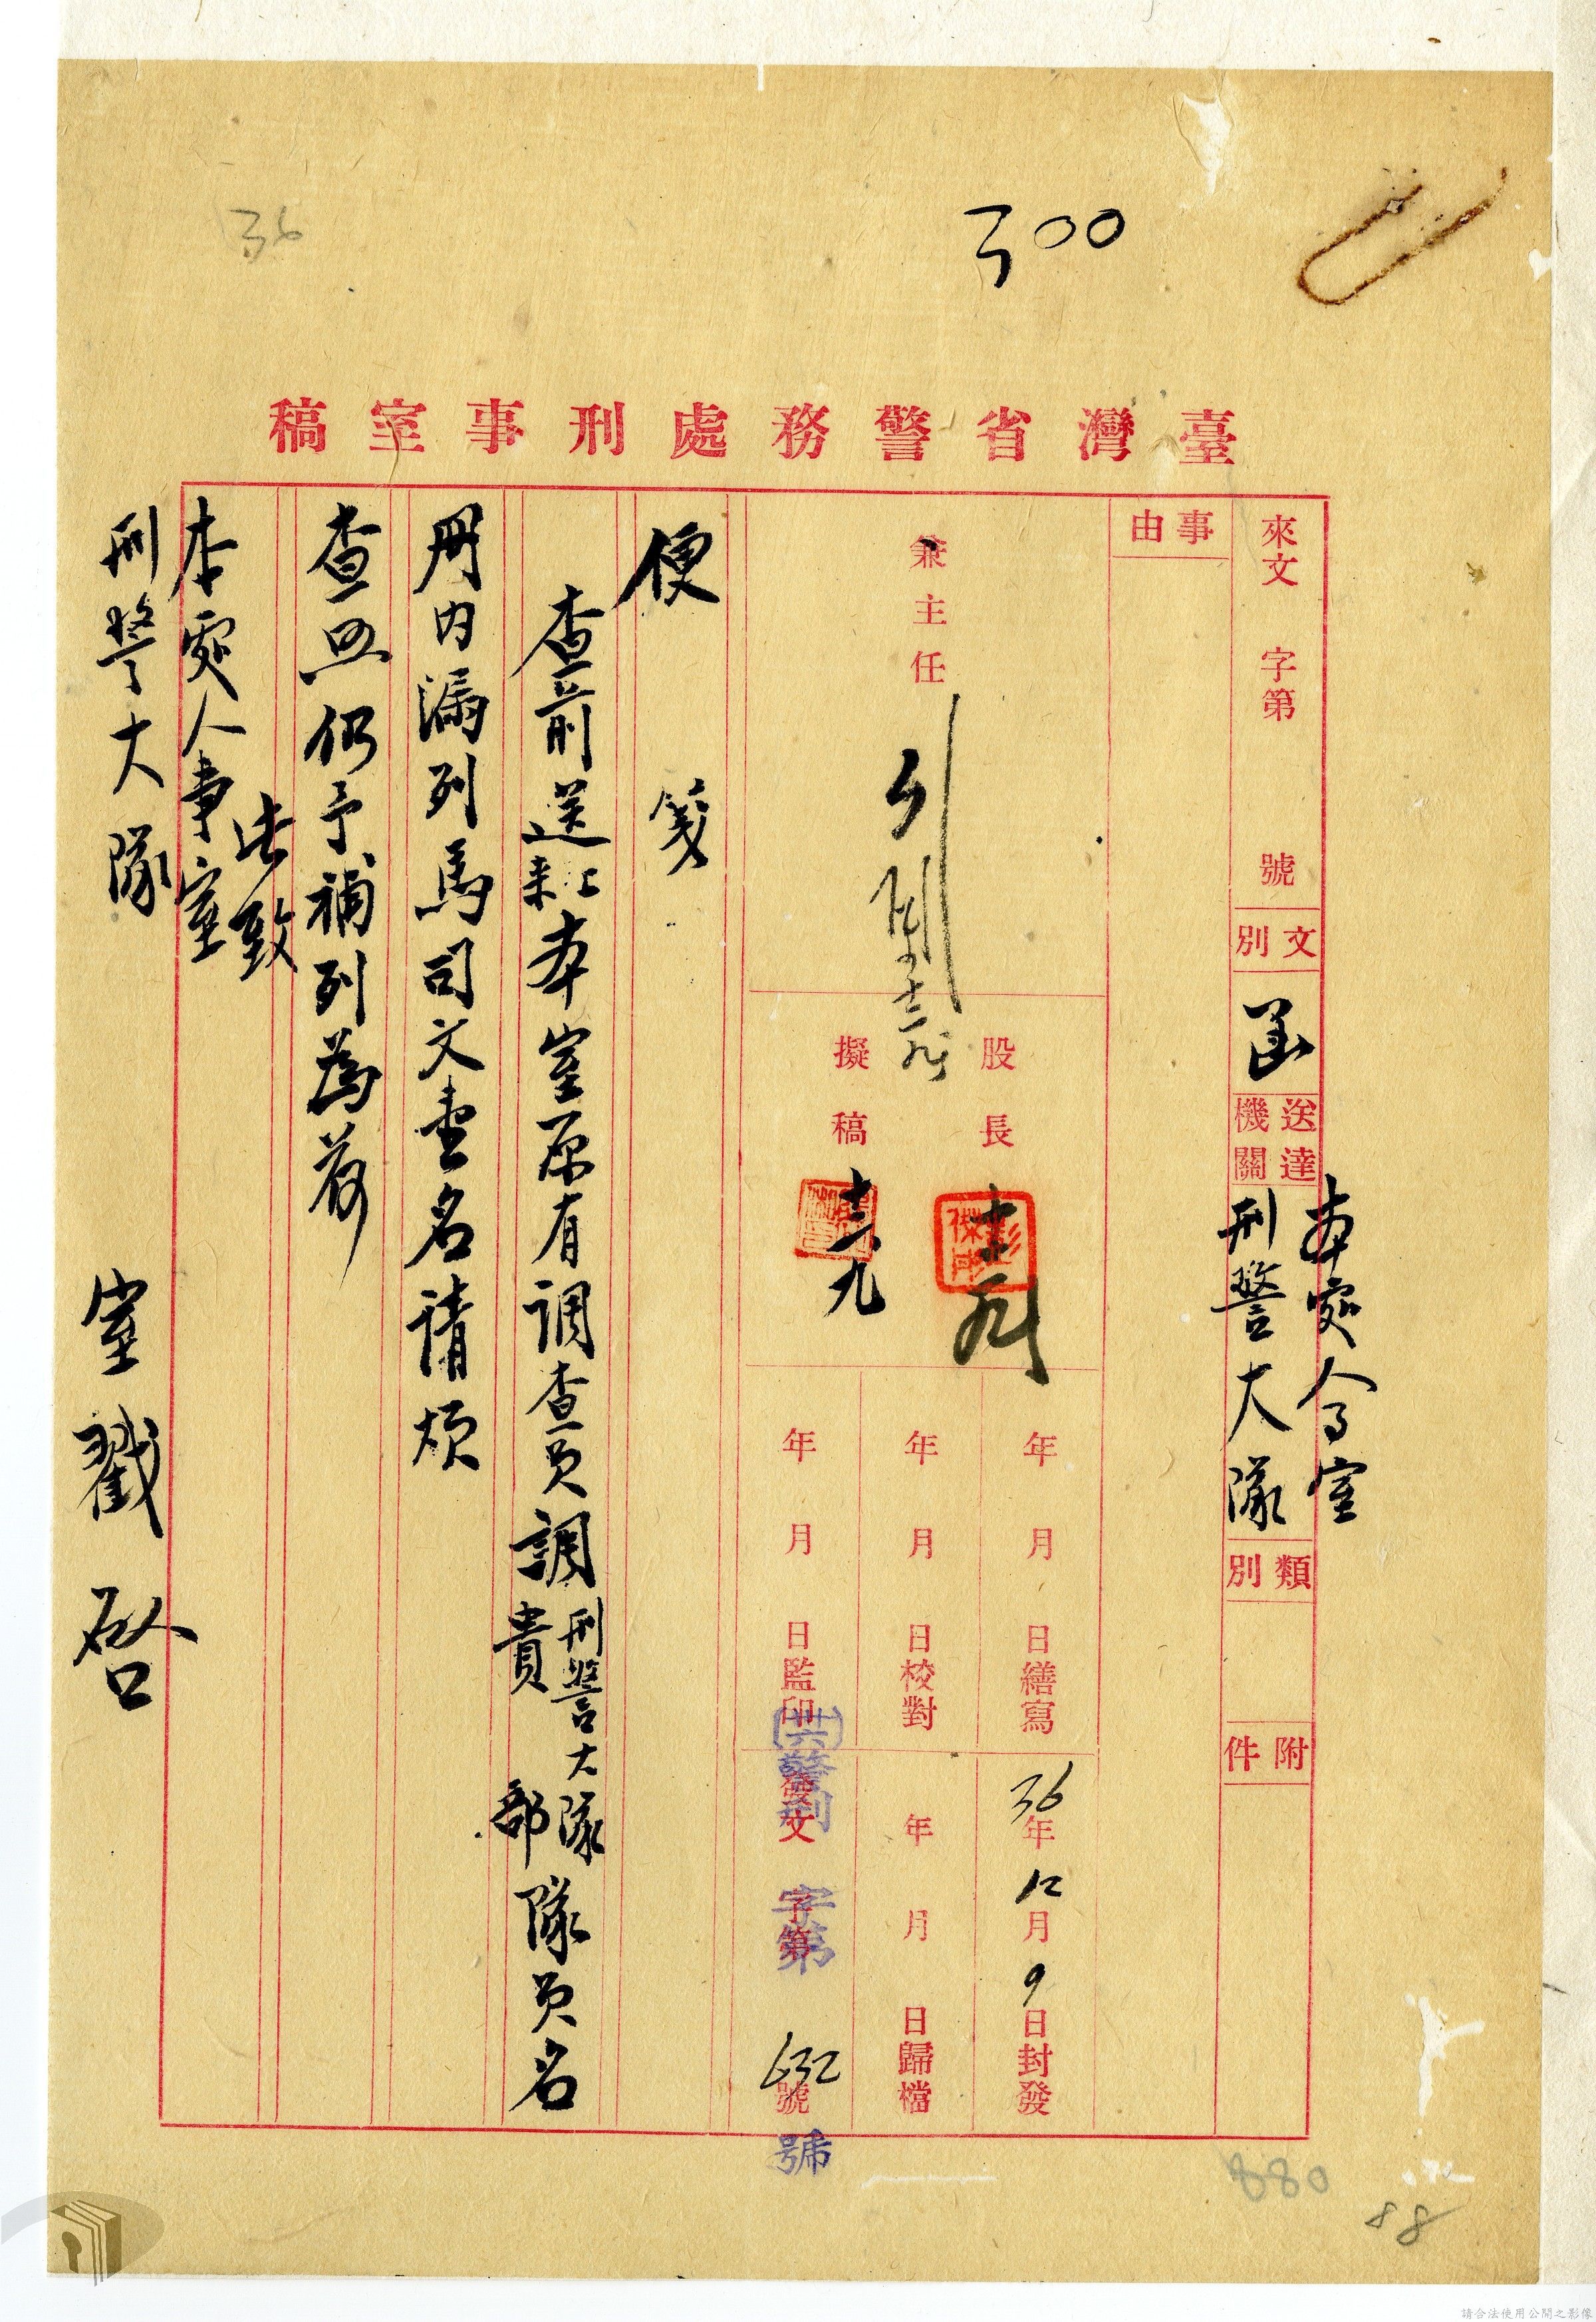 300
36
臺灣省警務處刑事室稿
來文 字第 號
文別 函
送達機關 本處人事室
刑警大隊
類別
附件
事由
兼主任
股長 十二 九
擬稿 十二 九
年 月 日繕寫
年 月 日校對
年 月 日監印
36年12月9日封發
年 月 日歸檔
發文 字第632號
(卅六)警刑 字第 號
便箋
查前送上來本室原有調查員調刑警大隊貴部隊員名
冊內漏列馬司文壹名請煩
查照仍予補列為荷
此致
本處人事室
刑警大隊
室戳 啓
880
88
請合法使用公開之影像